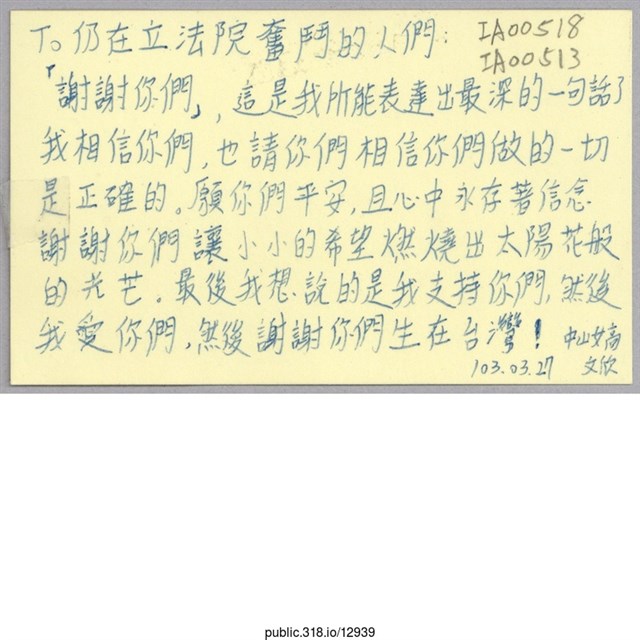 To 仍在立法院奮鬥的人們：
IA00518
IA00513
「謝謝你們」，這是我所能表達出最深的一句話了
我相信你們，也請你們相信你們做的一切
是正確的。願你們平安，且心中永存著信念
謝謝你們讓小小的希望燃燒出太陽花般
的光芒。最後我想說的是我支持你們，然後
我愛你們，然後謝謝你們生在台灣！
中山女高
103.03.27 文欣
public.318.io/12939